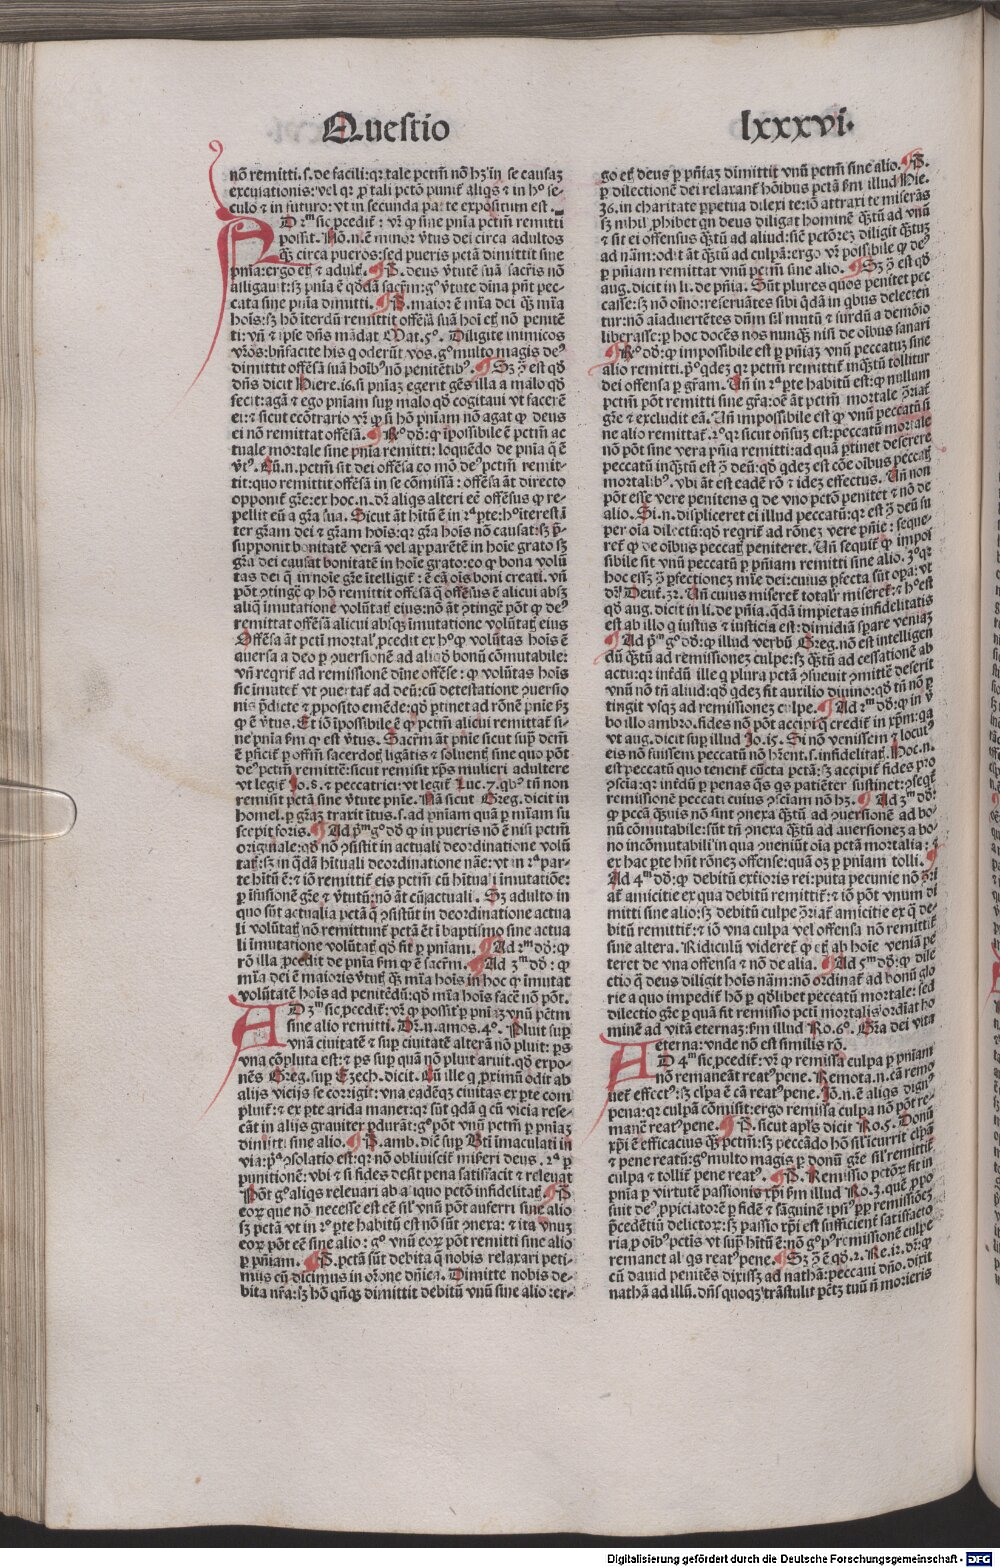 Questio
lxxxvi.
nō remitti. s. de facili: qꝛ tale pctm̄ nō hꝫ in se causaꝫ
excusationis: vel qꝛ ꝓ tali pctō punit̄ aliqs ⁊ in hͦ se-
culo ⁊ in futuro: vt in secunda parte expositum est.
AD 2ᵐ sic ꝓcedit̄: vr̄ ꝙ sine pnīa pctm̄ remitti
possit. Nō. n. ē minor v̄tus dei circa adultos
qꝫ̄ circa pueros: sed pueris pctā dimittit sine
pnīa: ergo etꝫ ⁊ adult̄. P̄. deus v̄tutē suā sacrīs nō
alligauit: sꝫ pnīa ē qd̄dā sacrm̄: gͦ v̄tute dīna pn̄t pec-
cata sine pnīa dimitti. P̄. maior ē mīa dei qꝫ̄ mīa
hoīs: sꝫ hō īterdū remittit offēsā suā hoī etꝫ nō penitē
ti: vn̄ ⁊ ipse dn̄s mādat Mat. 5ͦ. Diligite inimicos
vr̄os: bn̄facite his q oderūt vos. gͦ multo magis deꝰ
dimittit offēsā suā hoībꝰ nō penitētibꝰ. Sꝫ ꝯ̄ est qd̄
dn̄s dicit Hiere. 18. si pnīaꝫ egerit gēs illa a malo qd̄
fecit: agā ⁊ ego pnīam suꝑ malo qd̄ cogitaui vt facerē
ei: ⁊ sicut ecōtrario vr̄ ꝙ si hō pnīam nō agat ꝙ deus
ei nō remittat offēsā. Rͦ dd̄: ꝙ īpossibile ē pctm̄ ac
tuale mortale sine pnīa remitti: loquēdo de pnīa q̄ ē
v̄tꝰ. Cū. n. pctm̄ sit dei offēsa eo mō deꝰ pctm̄ remit-
tit: quo remittit offēsā in se cōmissā: offēsa āt directo
opponit̄ gr̄e: ex hoc. n. dr̄ aliqs alteri eē offēsus ꝙ re-
pellit eū a gr̄a sua. Sicut āt hītū ē in 2ᵃ pte: hͦ iterest ī
ter gr̄am dei ⁊ gr̄am hoīs: qꝛ gr̄a hoīs nō causat: sꝫ p̄-
supponit bonitatē verā vel apparētē in hoīe grato sꝫ
gr̄a dei causat bonitatē in hoīe grato: eo ꝙ bona volū
tas dei q̄ in noīe gr̄e ītelligit̄: ē cā ois boni creati. vn̄
pōt ꝯtingē ꝙ hō remittit offēsā q̄ offēsus ē alicui absꝫ
aliq̄ īmutatione volūtat̄ eius: nō āt ꝯtingē pōt ꝙ deꝰ
remittat offēsā alicui absqꝫ īmutatione volūtat̄ eius
Offēsa āt petī mortal̄ ꝓcedit ex hͦ ꝙ volūtas hoīs ē
auersa a deo ꝑ ꝯuersionē ad aliqd̄ bonū cōmutabile:
vn̄ reqrit̄ ad remissionē dīne offēse: ꝙ volūtas hoīs
sic īmutet̄ vt ꝯuertat̄ ad deū: cū detestatione ꝯuersio
nis p̄dicte ⁊ ꝓposito emēde: qd̄ ꝑtinet ad rōnē pnīe ẜm
ꝙ ē v̄tus. Et iō īpossibile ē ꝙ pctm̄ alicui remittat̄ si-
ne pnīa ẜm ꝙ est v̄tus. Sacrm̄ āt pnīe sicut supͣ dcm̄
ē ꝑficit̄ ꝑ offm̄ sacerdot̄ ligātis ⁊ soluent̄ sine quo pōt
deꝰ pctm̄ remittē: sicut remisit xp̄s mulieri adultere
vt legit̄ Jo. 8. ⁊ peccatrici: vt legit̄ Luc. 7. qbꝰ tn̄ non
remisit pctā sine v̄tute pnīe. Nā sicut Greg. dicit in
homel. ꝑ gr̄aꝫ traxit ītus. s. ad pnīam quā ꝑ mīam su
scepit foris. Ad pᵐ gͦ dd̄ ꝙ in pueris nō ē nisi pctm̄
originale: qd̄ nō ꝯsistit in actuali deordinatione volū
tat̄: sꝫ in qdā hītuali deordinatione nāe: vt in 2ᵃ par-
te hītū ē: ⁊ iō remittit̄ eis pctm̄ cū hītuali īmutatiōe:
ꝑ īfusionē gr̄e ⁊ v̄tutū: nō āt cū actuali. Sꝫ adulto in
quo sūt actualia pctā q̄ ꝯsistūt in deordinatione actua
li volūtat̄ nō remittunt̄ pctā ēt ī baptismo sine actua
li īmutatione volūtat̄ qd̄ fit ꝑ pnīam. Ad 2ᵐ dd̄: ꝙ
rō illa ꝓcedit de pnīa ẜm ꝙ ē sacrm̄. Ad 3ᵐ dd̄: ꝙ
mīa dei ē maioris v̄tut̄ qꝫ̄ mīa hoīs in hoc ꝙ īmutat
volūtatē hoīs ad penitēdū: qd̄ mīa hoīs facē nō pōt.
AD 3ᵐ sic ꝓcedit̄: vr̄ ꝙ possit ꝑ pnīaꝫ vnū pctm̄
sine alio remitti. Dr̄. n. amos. 4ͦ. Pluit suꝑ
vnā ciuitatē ⁊ suꝑ ciuitatē alterā nō pluit: ꝑs
vna cōpluta est: ⁊ ꝑs suꝑ quā nō pluit aruit. qd̄ expo-
nēs Greg. suꝑ Ezech. dicit. Cū ille q ꝓximū odit ab
alijs vicijs se corrigit: vna eadēqꝫ ciuitas ex pte com
pluit̄: ⁊ ex pte arida manet: qꝛ sūt qdā q cū vicia rese-
cāt in alijs grauiter ꝑdurāt: gͦ pōt vnū pctm̄ ꝑ pnīaꝫ
dimitti sine alio. P̄. amb. dicē sup Bt̄i īmaculati in
via: pᵃ ꝯsolatio est: qꝛ nō obliuiscit̄ misereri deus. 2ᵃ ꝑ
punitionē: vbi ⁊ si fides desit pena satisfacit ⁊ releuat
Pōt gͦ aliqs releuari ab aliquo pctō infidelitat̄. P̄
eoꝝ que nō necesse est eē sil̄ vnū pōt auferri sine alio
sꝫ pctā vt in 2ᵃ pte habitū est nō sūt ꝯnexa: ⁊ ita vnuꝫ
eoꝝ pōt eē sine alio: gͦ vnū eoꝝ pōt remitti sine alio
ꝑ pnīam. P̄. pctā sūt debita q̄ nobis relaxari peti-
mus cū dicimus in orōne dn̄ica. Dimitte nobis de-
bita nr̄a: sꝫ hō qn̄qꝫ dimittit debitū vnū sine alio: er-
go etꝫ deus ꝑ pn̄iaꝫ dimittit vnū pctm̄ sine alio. P̄.
ꝑ dilectionē dei relaxant̄ hoībus pctā ẜm illud Hie.
36. in charitate ꝑpetua dilexi te: iō attraxi te miserās
sꝫ nihil ꝓhibet qn deus diligat hominē qꝫ̄tū ad vnū
⁊ sit ei offensus qꝫ̄tū ad aliud: sic̄ pctōreꝫ diligit qꝫ̄tuꝫ
ad nām: odit āt qꝫ̄tū ad culpā: ergo vr̄ possibile ꝙ deꝰ
ꝑ pnīam remittat vnū pctm̄ sine alio. Sꝫ ꝯ̄ est qd̄
aug. dicit in li. de pnīa. Sūt plures quos penitet pec
casse: sꝫ nō oīno: reseruātes sibi qdā in qbus delecten
tur: nō aīaduertētes dn̄m sil̄ mutū ⁊ surdū a demōio
liberasse: ꝑ hoc docēs nos nunqꝫ̄ nisi de oībus sanari
Rͦ dd̄: ꝙ impossibile est ꝑ pnīaꝫ vnū peccatuꝫ sine
alio remitti. pͦ qdeꝫ qꝛ pctm̄ remittit̄ inqꝫ̄tū tollitur
dei offensa ꝑ gr̄am. Vn̄ in 2ᵃ pte habitū est: ꝙ nullum
pctm̄ pōt remitti sine gr̄a: oē āt pctm̄ mortale ꝯ̄riat̄
gr̄e ⁊ excludit eā. Vn̄ impossibile est ꝙ vnū peccatū si
ne alio remittat̄. 2ͦ qꝛ sicut oīisuꝫ est: peccatū mortale
nō pōt sine vera pnīa remitti: ad quā ꝑtinet deserere
peccatū inqꝫ̄tū est ꝯ̄ deū: qd̄ qdeꝫ est cōe oībus peccat̄
mortalibꝰ. vbi āt est eadē rō ⁊ ideꝫ effectus. Vn̄ non
pōt esse vere penitens q de vno pctō penitet ⁊ nō de
alio. Si. n. displiceret ei illud peccatū: qꝛ est ꝯ̄ deū su
per oīa dilectū: qd̄ reqrit̄ ad rōneꝫ vere pnīe: seque-
ret̄ ꝙ de oībus peccat̄ peniteret. Vn̄ sequit̄ ꝙ impos
sibile sit vnū peccatū ꝑ pnīam remitti sine alio. 3ͦ qꝛ
hoc esset ꝯ̄ ꝑfectioneꝫ mīe dei: cuius ꝑfecta sūt opa: vt
dr̄ Deut̄. 32. Vn̄ cuius miseret̄ totalr̄ miseret̄: ⁊ hͦ est
qd̄ aug. dicit in li. de pnīa. qdā impietas infidelitatis
est ab illo q iustus ⁊ iusticia est: dimidiā sꝑare veniaꝫ
Ad pᵐ gͦ dd̄: ꝙ illud verbū Greg. nō est intelligen
dū qꝫ̄tū ad remissioneꝫ culpe: sꝫ qꝫ̄tū ad cessationē ab
actu: qꝛ intdū ille q plura pctā ꝯsueuit ꝯmittē deserit
vnū nō tn̄ aliud: qd̄ qdeꝫ fit auxilio diuino: qd̄ tn̄ nō ꝑ
tingit vsqꝫ ad remissioneꝫ culpe. Ad 2ᵐ dd̄: ꝙ in v̄
bo illo ambro. fides nō pōt accipi q̄ credit̄ in xp̄m: qa
vt aug. dicit suꝑ illud Jo. 15. Si nō venissem ⁊ locutꝰ
eis nō fuissem peccatū nō hr̄ent. s. infidelitat̄. Hoc. n.
est peccatū quo tenent̄ cūcta pctā: sꝫ accipit̄ fides ꝓ
ꝯscia: qꝛ intdū ꝑ penas q̄s qs patiēter sustinet: ꝯseqt̄
remissionē peccati cuius ꝯsciam nō hꝫ. Ad 3ᵐ dd̄:
ꝙ pccā qꝫ̄uis nō sint ꝯnexa qꝫ̄tū ad ꝯuersionē ad bo-
nū cōmutabile: sūt tn̄ ꝯnexa qꝫ̄tū ad auersioneꝫ a bo-
no incōmutabili in qua ꝯueniūt oīa pctā mortalia: ⁊
ex hac pte hn̄t rōneꝫ offense: quā oꝫ ꝑ pnīam tolli.
Ad 4ᵐ dd̄: ꝙ debitū ext̄ioris rei: puta pecunie nō ꝯ̄ri
at̄ amicitie ex qua debitū remittit̄: ⁊ iō pōt vnum di
mitti sine alio: sꝫ debitū culpe ꝯ̄riat̄ amicitie ex q̄ de-
bitū remittit̄: ⁊ iō vna culpa vel offensa nō remittit̄
sine altera. Ridiculū videret̄ ꝙ etꝫ ab hoīe veniā pe
teret de vna offensa ⁊ nō de alia. Ad 5ᵐ dd̄: ꝙ dile
ctio q̄ deus diligit hoīs nām: nō ordinat̄ ad bonū glo
rie a quo impedit̄ hō ꝑ qd̄libet peccatū mortale: sed
dilectio gr̄e ꝑ quā fit remissio pctī mortalis ordīat ho
minē ad vitā eternaꝫ: ẜm illud Ro. 6ͦ. Gr̄a dei vita
eterna: vnde nō est similis rō.
AD 4ᵐ sic ꝓcedit̄: vr̄ ꝙ remissa culpa ꝑ pnīam
nō remaneāt reatꝰ pene. Remota. n. cā remo
uet̄ effectꝰ: sꝫ clpa ē cā reatꝰ pene. Iō. n. ē aliqs dignꝰ
pena: qꝛ culpā cōmisit: ergo remissa culpa nō pōt re-
manē reatꝰ pene. P̄. sicut apl̄s dicit Ro. 5. Donū
xp̄i ē efficacius qꝫ̄ pctm̄: sꝫ peccādo hō sil̄ icurrit clpā
⁊ pene reatū: gͦ multo magis ꝑ donū gr̄e sil̄ remittit̄
culpa ⁊ tollit̄ pene reatꝰ. P̄. Remissio pctōꝝ fit in
pnīa ꝑ virtutē passionis xp̄i ẜm illud Ro. 3. quē ꝓpo
suit deꝰ ꝓpiciatorē ꝑ fidē ⁊ sāguinē ipsiꝰ ꝓp̄ remissioeꝫ
p̄cedētiū delictoꝝ: sꝫ passio xp̄i est sufficient̄ satisfacto
ria ꝓ oībꝰ pctīs vt supͣ hītū ē: nō gͦ pͦ remissionē culpe
remanet aliqs reatꝰ pene. Sꝫ ꝯ̄ ē qd̄. 2. Re. 12. dr̄: ꝙ
cū dauid penitēs dixissꝫ ad nathā: peccaui dn̄o. dixit
nathā ad illū. dn̄s quoqꝫ trāstulit pctꝫ tuū nō morieris
Digitalisierung gefördert durch die Deutsche Forschungsgemeinschaft - DFG